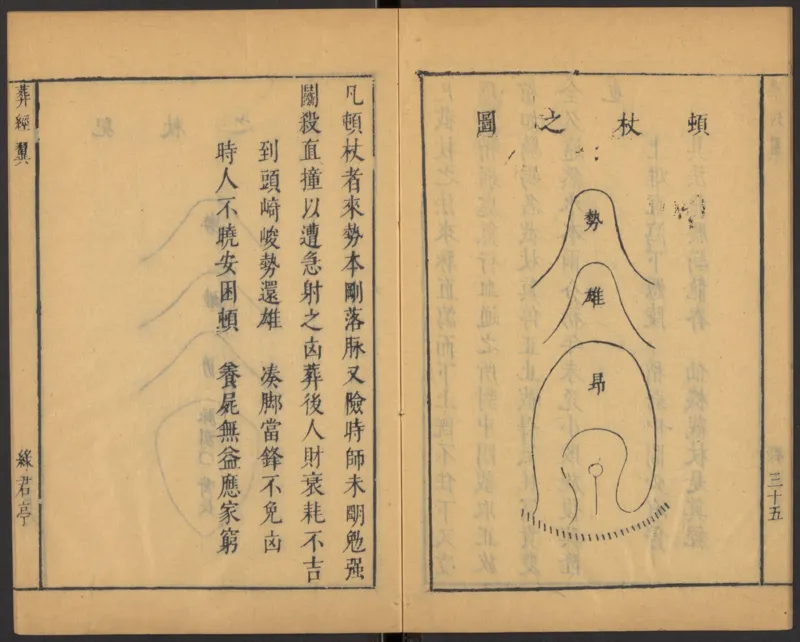 三十五
頓杖之圖
勢
雄
昂
凡頓杖者來勢本剛落脉又險時師未明勉强
鬬殺直撞以遭急射之凶葬後人財衰耗不吉
到頭崎峻勢還雄　湊脚當鋒不免凶
時人不曉安困頓　養屍無益應家窮
葬經翼
綠君亭